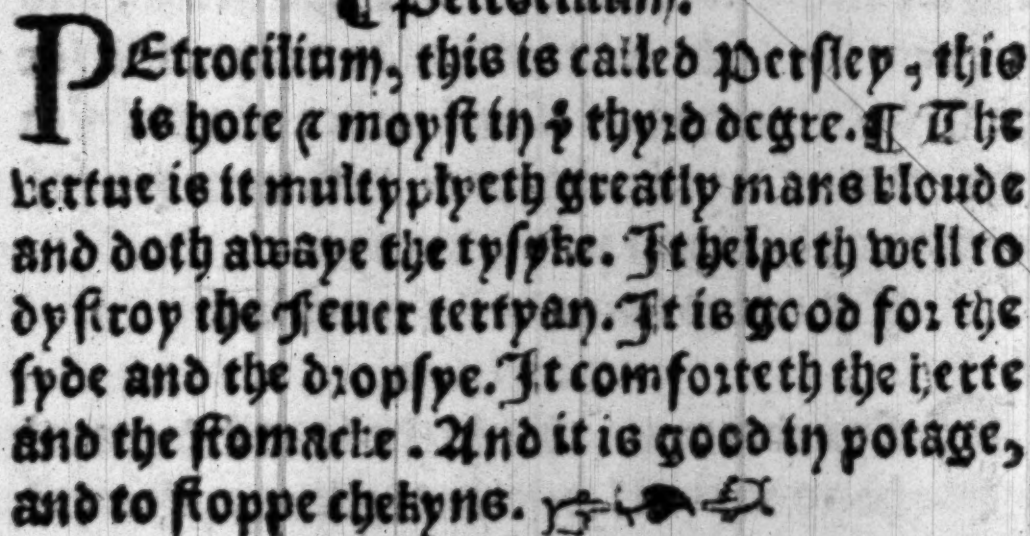 PEtrociliũm, this is called Persley, this
is hote ⁊ moyst in ẏ thyrd degre. ¶ The
vertue is it multyplyeth greatly mans bloude
and doth awaye the tysyke. It helpeth well to
dystroy the Feuer tertyan. It is good for the
syde and the dropsye. It comforteth the herte
and the stomacke. And it is good in potage,
and to stoppe chekyns.